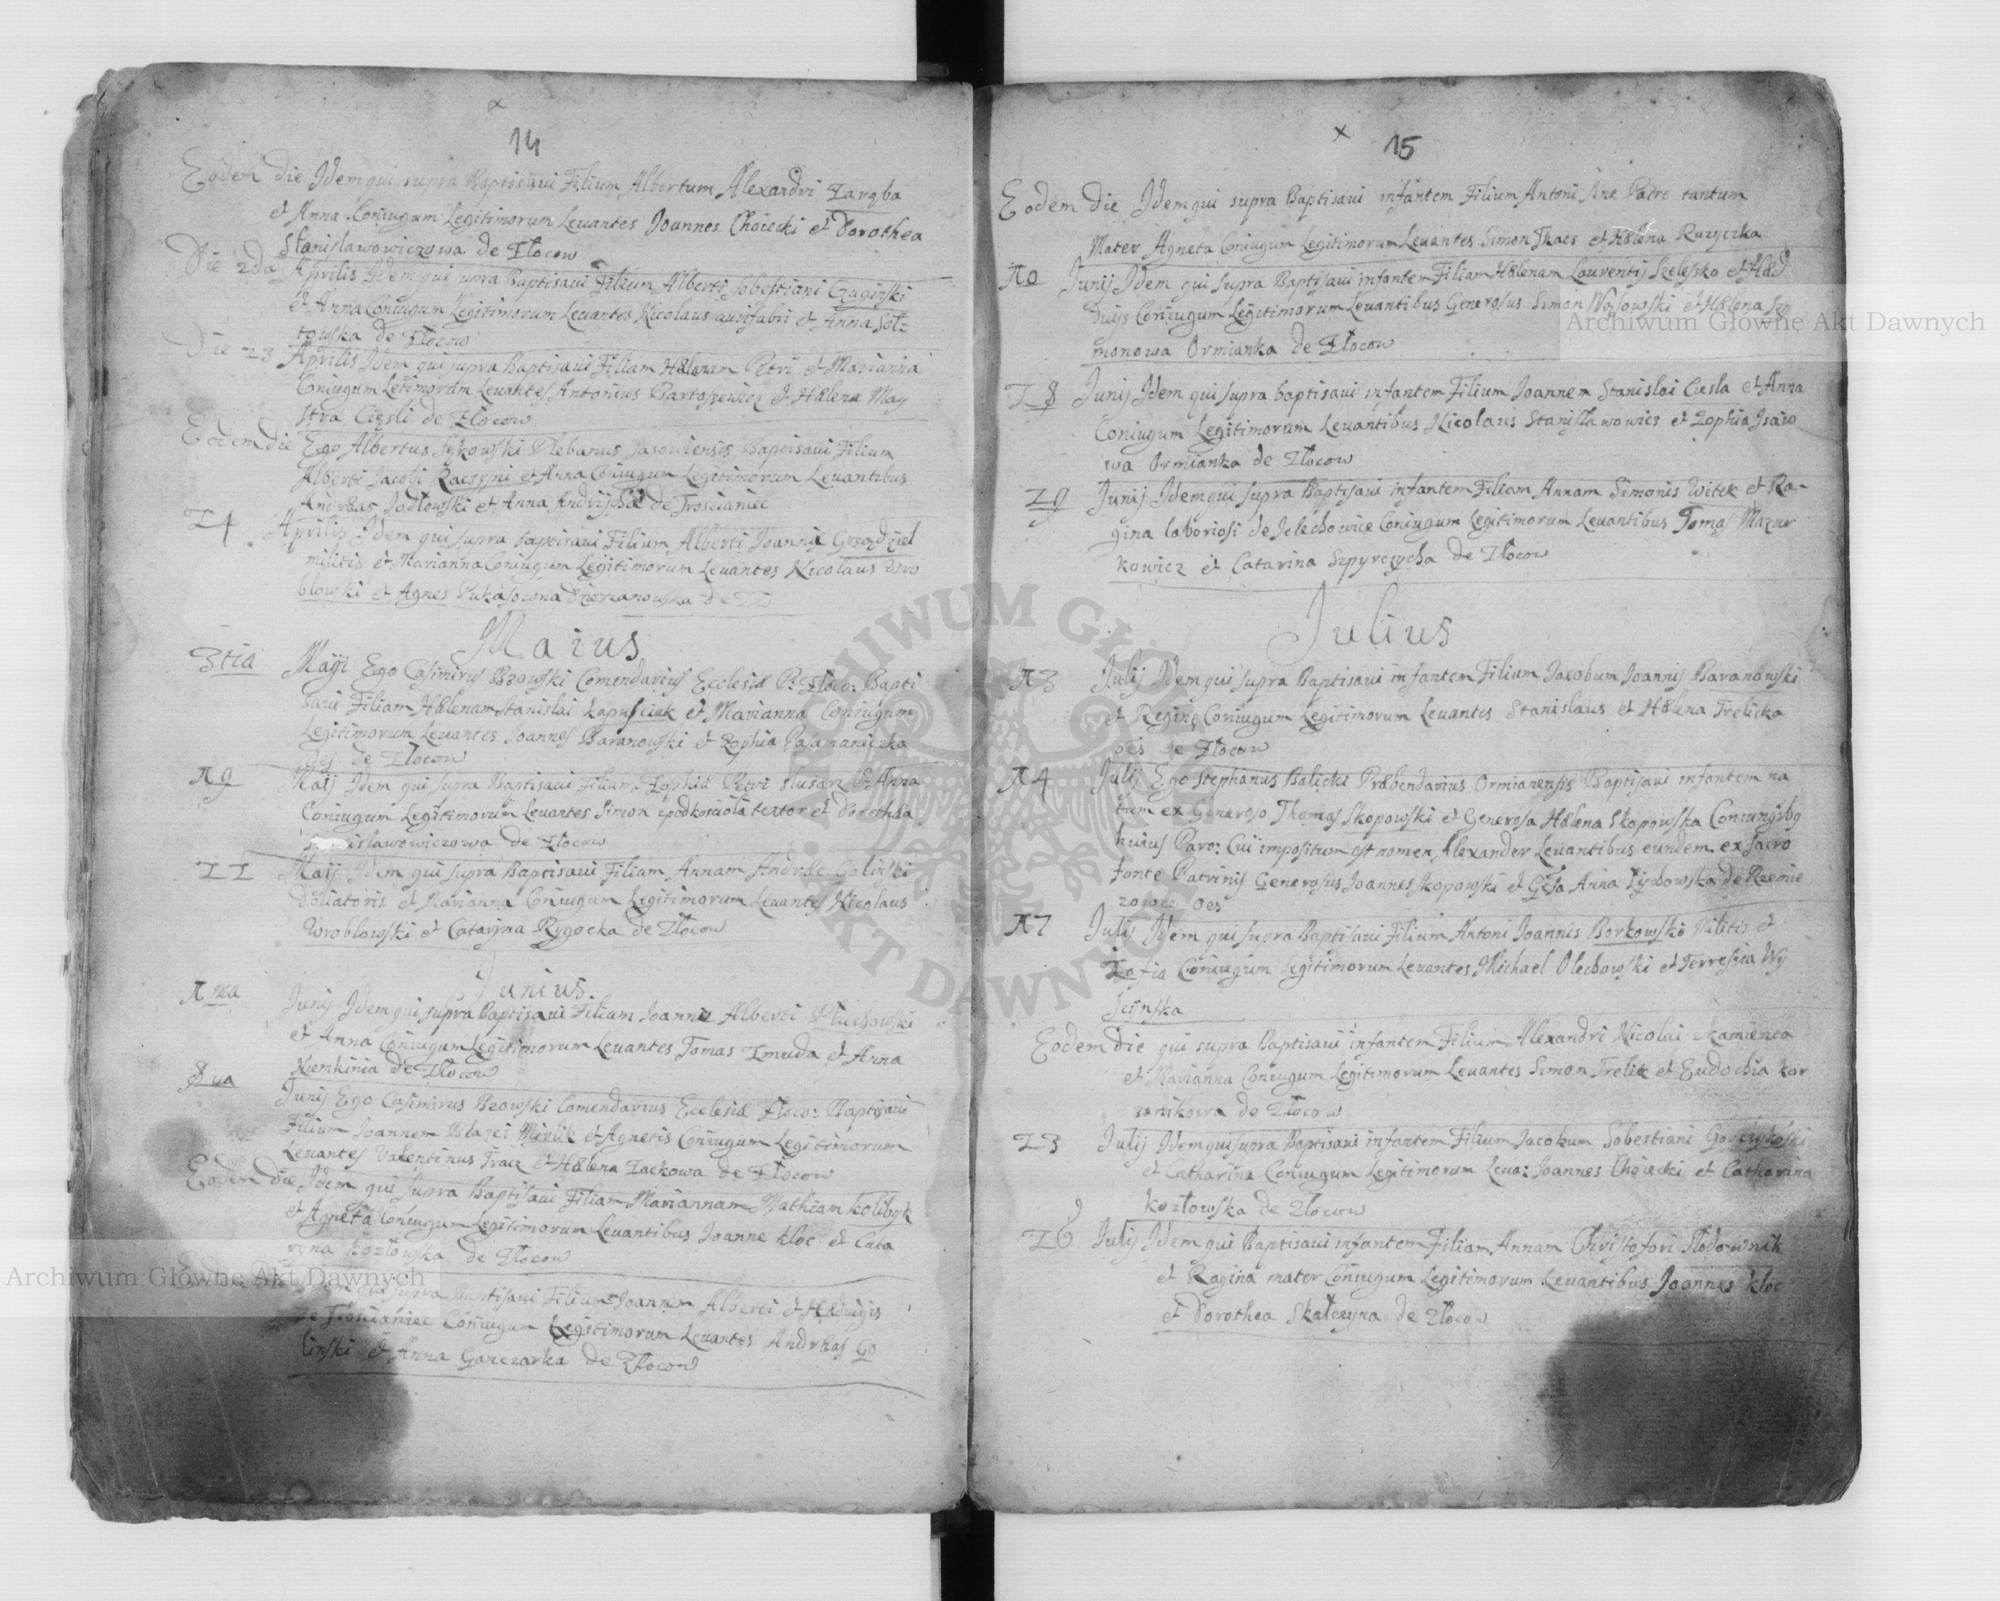 14
Eodem die Idem qui supra Baptisaui Filium Albertum Alexandri Zaręba
et Anna Coniugum Legitimorum Leuantes Joannes Choiecki et Dorothea
Stanislawowiczowa de Złocow
Die 2da Aprilis Idem qui supra Baptisaui Filium Alberti Sobestiani
et Anna Coniugum Legitimorum Leuantes Nicolaus aurifabri et Anna Soł=
towska de Złocow
Die 23 Aprilis Idem qui supra Baptisaui Filiam Hælenam Petri et Marianna
Coniugum Letimorum Leuantes Antonius Bartoszewicz et Hælena May
stra Cieśli de Złocow
Eodem die Ego Albertus Plebanus Sasouiensis Baptisaui Filium
Alberti Jacobi et Anna Coniugum Legitimorum Leuantibus
Andræas Jodłowski et Anna de Troscianiec
24 Aprilis Idem qui supra Baptisaui Filium Alberti Joannis
militis et Marianna Coniugum Legitimorum Leuantes Nicolaus Wro
blowski et Agnes Dzierzanowska de
Maius
3tia Maÿi Ego Casimirus Bzowski Comendarius Ecclesiæ P: Złoco: Bapti
saui Filiam Hælenam Stanislai Kapuściak et Marianna Coniugum
Legitimorum Leuantes Joannes Baranowski et Zophia Pasamaniczka
de Złocow
19 Maij Idem qui supra Baptisaui Filium Zophia Petri Slusarz et Anna
Coniugum Legitimorum Leuantes Simon textor et Dorothea
Stanislawowiczowa de Złocow
22 Maij Idem qui supra Baptisaui Filiam Annam Andreæ Golinski
Doliatoris et Marianna Coniugum Legitimorum Leuantes Nicolaus
Wroblowski et Cataryna Rygocka de Złocow
Junius
1ma Junij Idem qui supra Baptisaui Filiam Joannæ Alberti
et Anna Coniugum Legitimorum Leuantes Tomas Zmuda et Anna
Niemkinia de Złocow
8va Junij Ego Casimirus Bzowski Comendarius Ecclesiæ Złoco: Baptisaui
Filium Joannem Blazei et Agnetis Coniugum Legitimorum
Leuantes Valentinus Tracz et Hælena Zackowa de Złocow
Eodem die Idem qui supra Baptisaui Filiam Mariannam Mathiam
et Agneta Coniugum Legitimorum Leuantibus Joanne Kloc et Cata
ryna Kozłowska de Złocow
Idem qui supra Baptisaui Filium Joannem Alberti et Hæduigis
de Troscianiec Coniugum Legitimorum Leuantes Andræas Go
linski et Anna Garczarka de Złocow
15
Eodem die Idem qui supra Baptisaui infantem Filium Antoni sine Patre tantum
Mater Agneta Coniugum Legitimorum Leuantes Simon Tkacs et Hælena Ruzyczka
10 Junij Idem qui supra Baptisaui infantem Filiam Hælenam Laurentij et Hæd
uijs Coniugum Legitimorum Leuantibus Generosus Simon Woysowski et Hælena Szy
monowa Ormianka de Złocow
28 Junij Idem qui supra baptisaui infantem Filium Joannem Stanislai Ciesla et Anna
Coniugum Legitimorum Leuantibus Nicolaus Stanisławowics et Zophia Isaio
wa Ormianka de Złocow
29 Junij Idem qui supra Baptisaui infantem Filiam Annam Simonis Witek et Ra-
gina laboriosi de Jelechowice Coniugum Legitimorum Leuantibus Tomas Mazur
kowicz et Catarina de Złocow
Julius
13 Julij Idem qui supra Baptisaui infantem Filium Jacobum Joannis Baranowski
et Reginę Coniugum Legitimorum Leuantes Stanislaus et Hælena Trelicka
oēs de Złocow
14 Julij Ego Stephanus Balicki Præbendarius Ormianensis Baptisaui infantem na
tum ex Generoso Thomas Skopowski et Generosa Hælena Skopowska
huius Paro: Cui impositum est nomen Alexander Leuantibus eundem ex sacro
fonte Patrinis Generosus Joannes Skopowski et Gēsa Anna de
oēs
17 Julij Idem qui supra Baptisaui Filium Antoni Joannis Borkowski Militis et
Zofia Coniugum Legitimorum Leuantes Michael Olechowski et Terresia Wy
Eodem die qui supra Baptisaui infantem Filium Alexandri Nicolai zkamienca
et Marianna Coniugum Legitimorum Leuantes Simon Trelik et Eudochia Kor
zenikowa de Złocow
23 Julij Idem qui supra Baptisaui infantem Filium Jacobum Sobestiani
et Catharina Coniugum Legitimorum Leua: Joannes Choiecki et Catharina
Kozłowska de Złocow
26 Julij Idem qui Baptisaui infantem Filiam Annam Christofori Słodownik
et Ragina mater Coniugum Legitimorum Leuantibus Joannes Kloc
et Dorothea Skałczyna de Złocow
Archiwum Główne Akt Dawnych
Archiwum Główne Akt Dawnych
ARCHIWUM GŁÓWNE AKT DAWNYCH